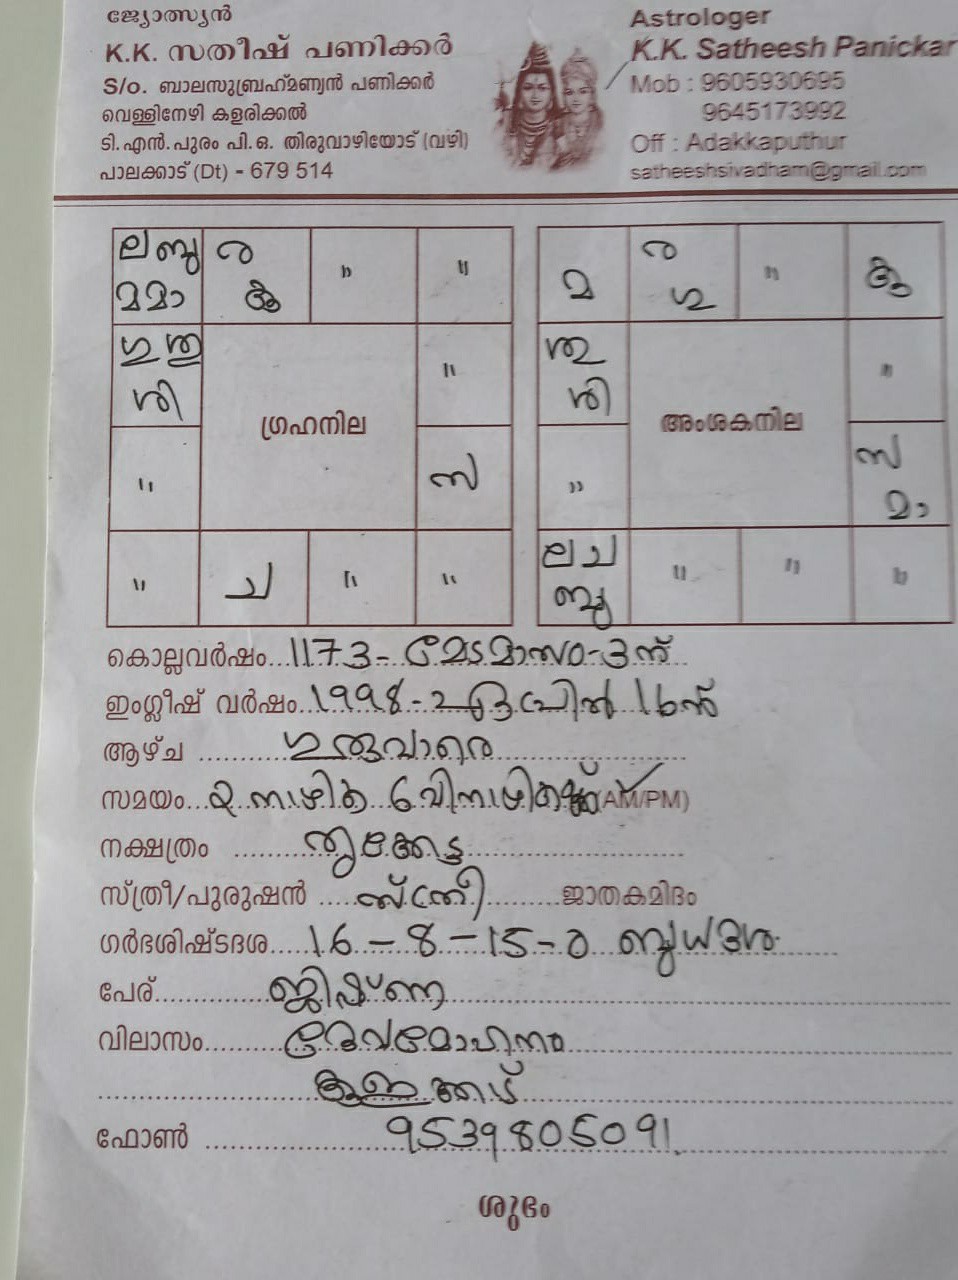 ജ്യോത്സ്യൻ
K.K. സതീഷ് പണിക്കർ
S/o. ബാലസുബ്രഹ്മണ്യൻ പണിക്കർ
വെള്ളിനേഴി കളരിക്കൽ
ടി.എൻ.പുരം പി.ഒ. തിരുവാഴിയോട് (വഴി)
പാലക്കാട് (Dt) - 679 514
Astrologer
K.K. Satheesh Panickar
Mob : 9605930695
9645173992
Off : Adakkaputhur
satheeshsivadham@gmail.com
ല ബു ര " "
മ മാ
ഗു
ശി
"
ഗ്രഹനില
"
സ
" ച " "
ര " 
മ
ശി
"
അംശകനില
"
സ
മാ
ല ച " " "
ബു
കൊല്ലവർഷം 1173 - മേടമാസം - 3ന്
ഇംഗ്ലീഷ് വർഷം 1998 - ഏപ്രിൽ 16ന്
ആഴ്ച ഗുരുവാരെ
സമയം 2 നാഴിക 6 വിനാഴികക്ക് (AM/PM)
നക്ഷത്രം തൃക്കേട്ട
സ്ത്രീ/പുരുഷൻ സ്ത്രീ ജാതകമിദം
ഗർഭശിഷ്ടദശ 16 - 8 - 15 - 0 ബുധദശ
പേര് ജിഷ്ണ
വിലാസം ദേവമോഹനം
ഫോൺ 9539805091
ശുഭം